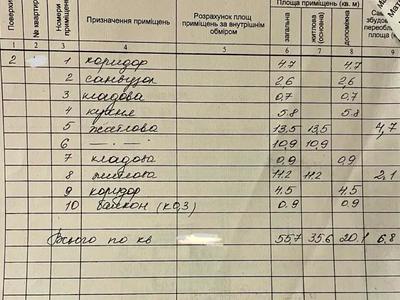 Поверхи
№ квартир
Номери приміщень
Призначення приміщень
Розрахунок площ приміщень за внутрішнім обміром
Площа приміщень (кв. м)
загальна
житлова (основна)
допоміжна
1 2 3 4 5 6 7 8 9
2 1 коридор 4,7 4,7
2 санвузол 2,6 2,6
3 кладова 0,7 0,7
4 кухня 5.8 5.8
5 житлова 13,5 13,5 4,7
6 — . — . 10,9 10,9
7 кладова 0,9 0,9
8 житлова 11.2 11.2 2,1
9 коридор 4,5 4,5
10 балкон (к 0,3) 0.9 0.9
Всього по кв 55,7 35,6 20,1 6,8